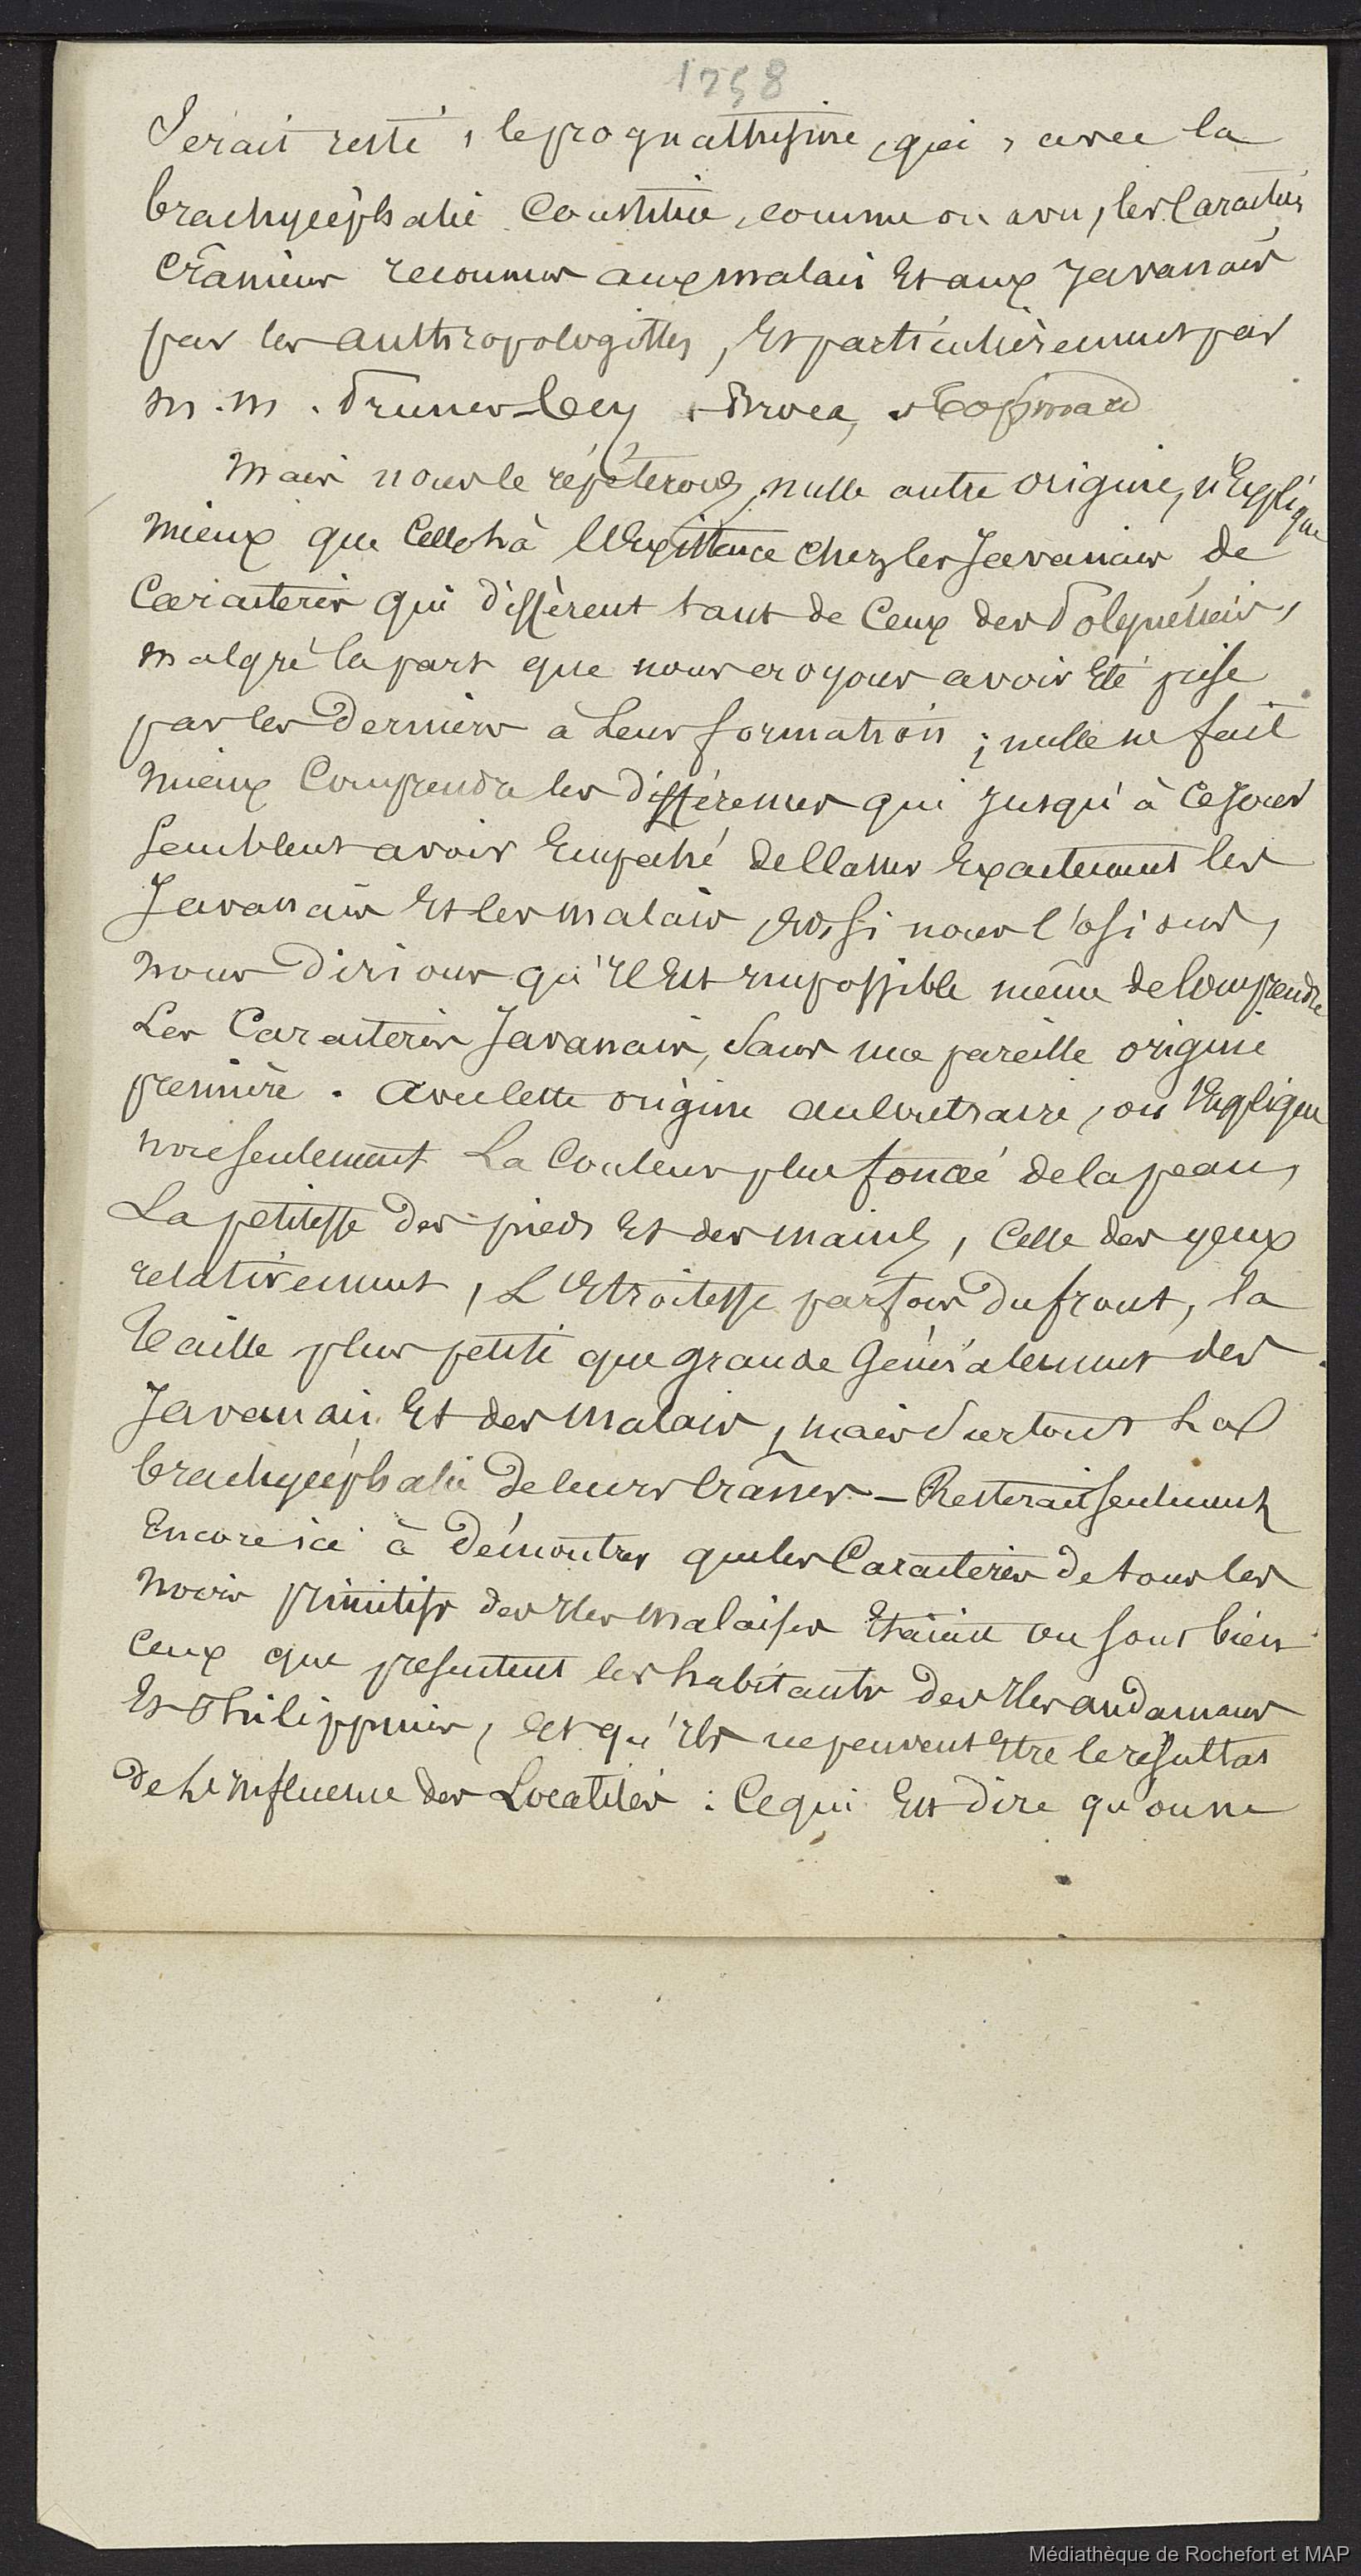 1758
Serait resté, le prognathisme, qui, avec la
brachycéphalie constitue, comme on a vu, les Caractères
Crâniens reconnus aux malais Et aux Javanais
par les anthropologistes, Et particulièrement par
m.m. Pruner-bey, Broca, Topinard
Mais nous le répéterons, nulle autre origine, n'Explique
mieux que Celle là l'Existence chez les Javanais de
Caractères qui différent tant de Ceux des Polynésiens,
malgré la part que nous croyons avoir Eté prise
par les Derniers à Leur formation ; nulle ne fait
mieux Comprendre les différences qui jusqu'à ce jour
Semblent avoir Empêché de Classer Exactement les
Javanais Et les malais, Et, si nous l'osions,
nous Dirions qu'il Est impossible même de Comprendre
Les Caractères Javanais, Sans une pareille origine
première. Avec Cette origine au Contraire, on Explique
non seulement La Couleur plus foncée de la peau,
La petitesse des pieds Et des mains, Celle des yeux
relativement, L'Etroitesse parfois Du front, la
Taille plus petite que grande Généralement des
Javanais Et des Malais, mais Surtout La
brachycéphalie De leurs Crânes - Resterait seulement
Encore ici à Démontrer que les Caractères de tous les
noirs primitifs des Iles malaises Etaient ou sont bien
Ceux que présentent les habitants des Iles andamans
Et Philippines, Et qu'ils ne peuvent Etre le résultat
de L'influence des Localités : Ce qui Est dire qu'on ne
Médiathèque de Rochefort et MAP